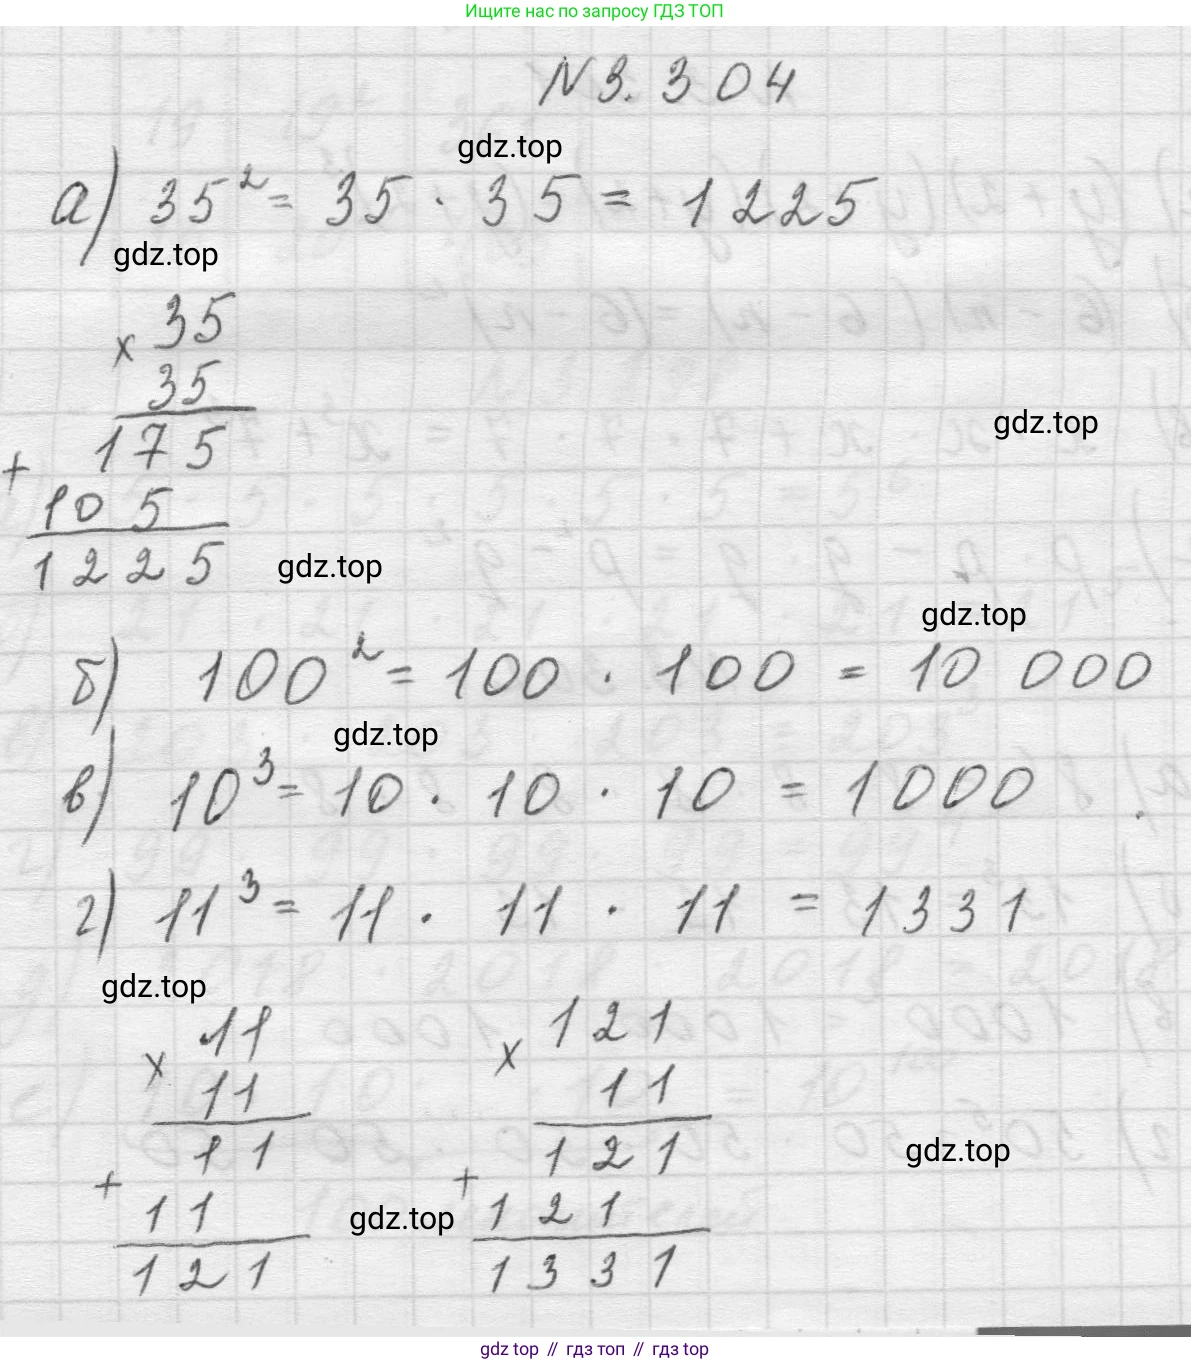 Ищите нас по запросу ГДЗ ТОП
N 3. 304
gdz.top
а) 35² = 35 · 35 = 1225
gdz.top
× 35
35
gdz.top
175
+
105
1225
gdz.top
gdz.top
б) 100² = 100 · 100 = 10 000
gdz.top
в) 10³ = 10 · 10 · 10 = 1000
г) 11³ = 11 · 11 · 11 = 1331
gdz.top
× 11 × 121
11 11
11 121
gdz.top
+ +
11 121
gdz.top
121 1331
gdz top // гдз топ // гдз top